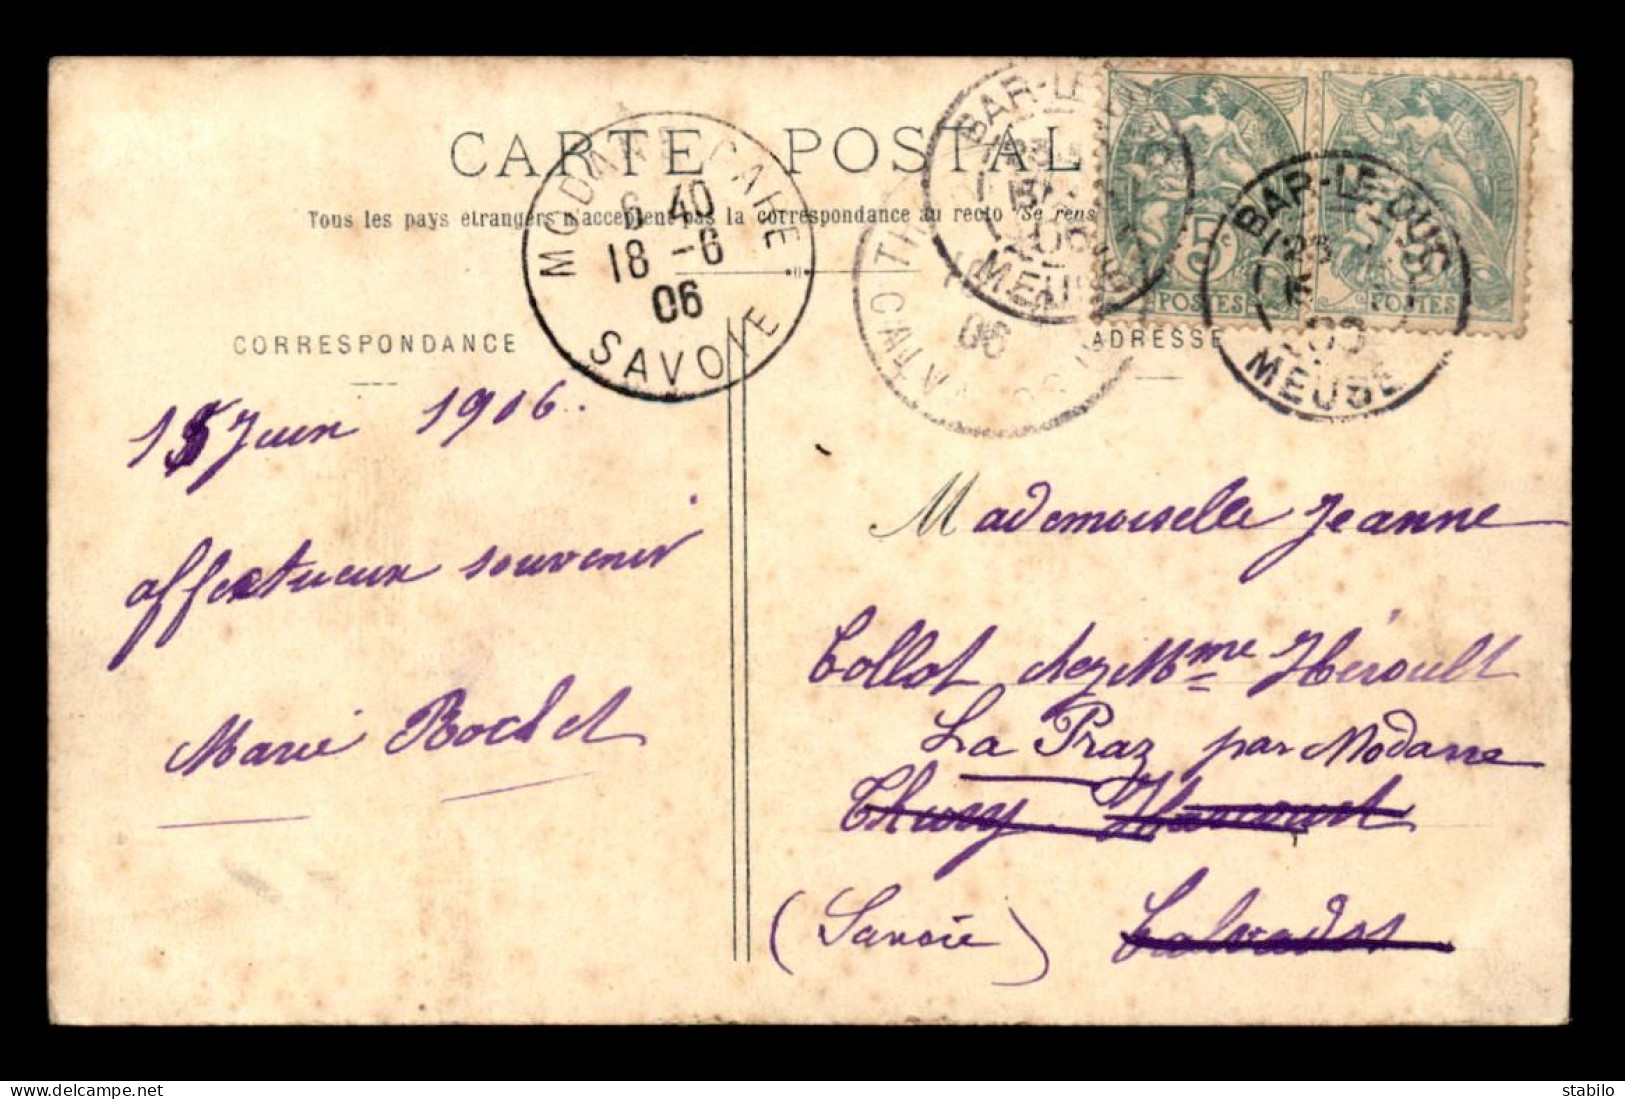 CARTE POSTAL
Tous les pays étrangers n'acceptent pas la correspondance au recto Se rens
CORRESPONDANCE
ADRESSE
MODANE GARE
6 40
18 - 6
06
SAVOIE
06
BAR-LE-DUC
06
MEUSE
BAR-LE-DUC
MEUSE
5c
POSTES
POSTES
15 Juin 1906.
affectueux souvenir
Marie Rochet
Mademoiselle Jeanne
Collot chez Mme Héroult
La Praz par Modane
Thury Harcourt
(Savoie) Calvados
stabilo